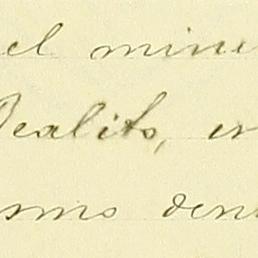 el mine
Dealits, en
smo den